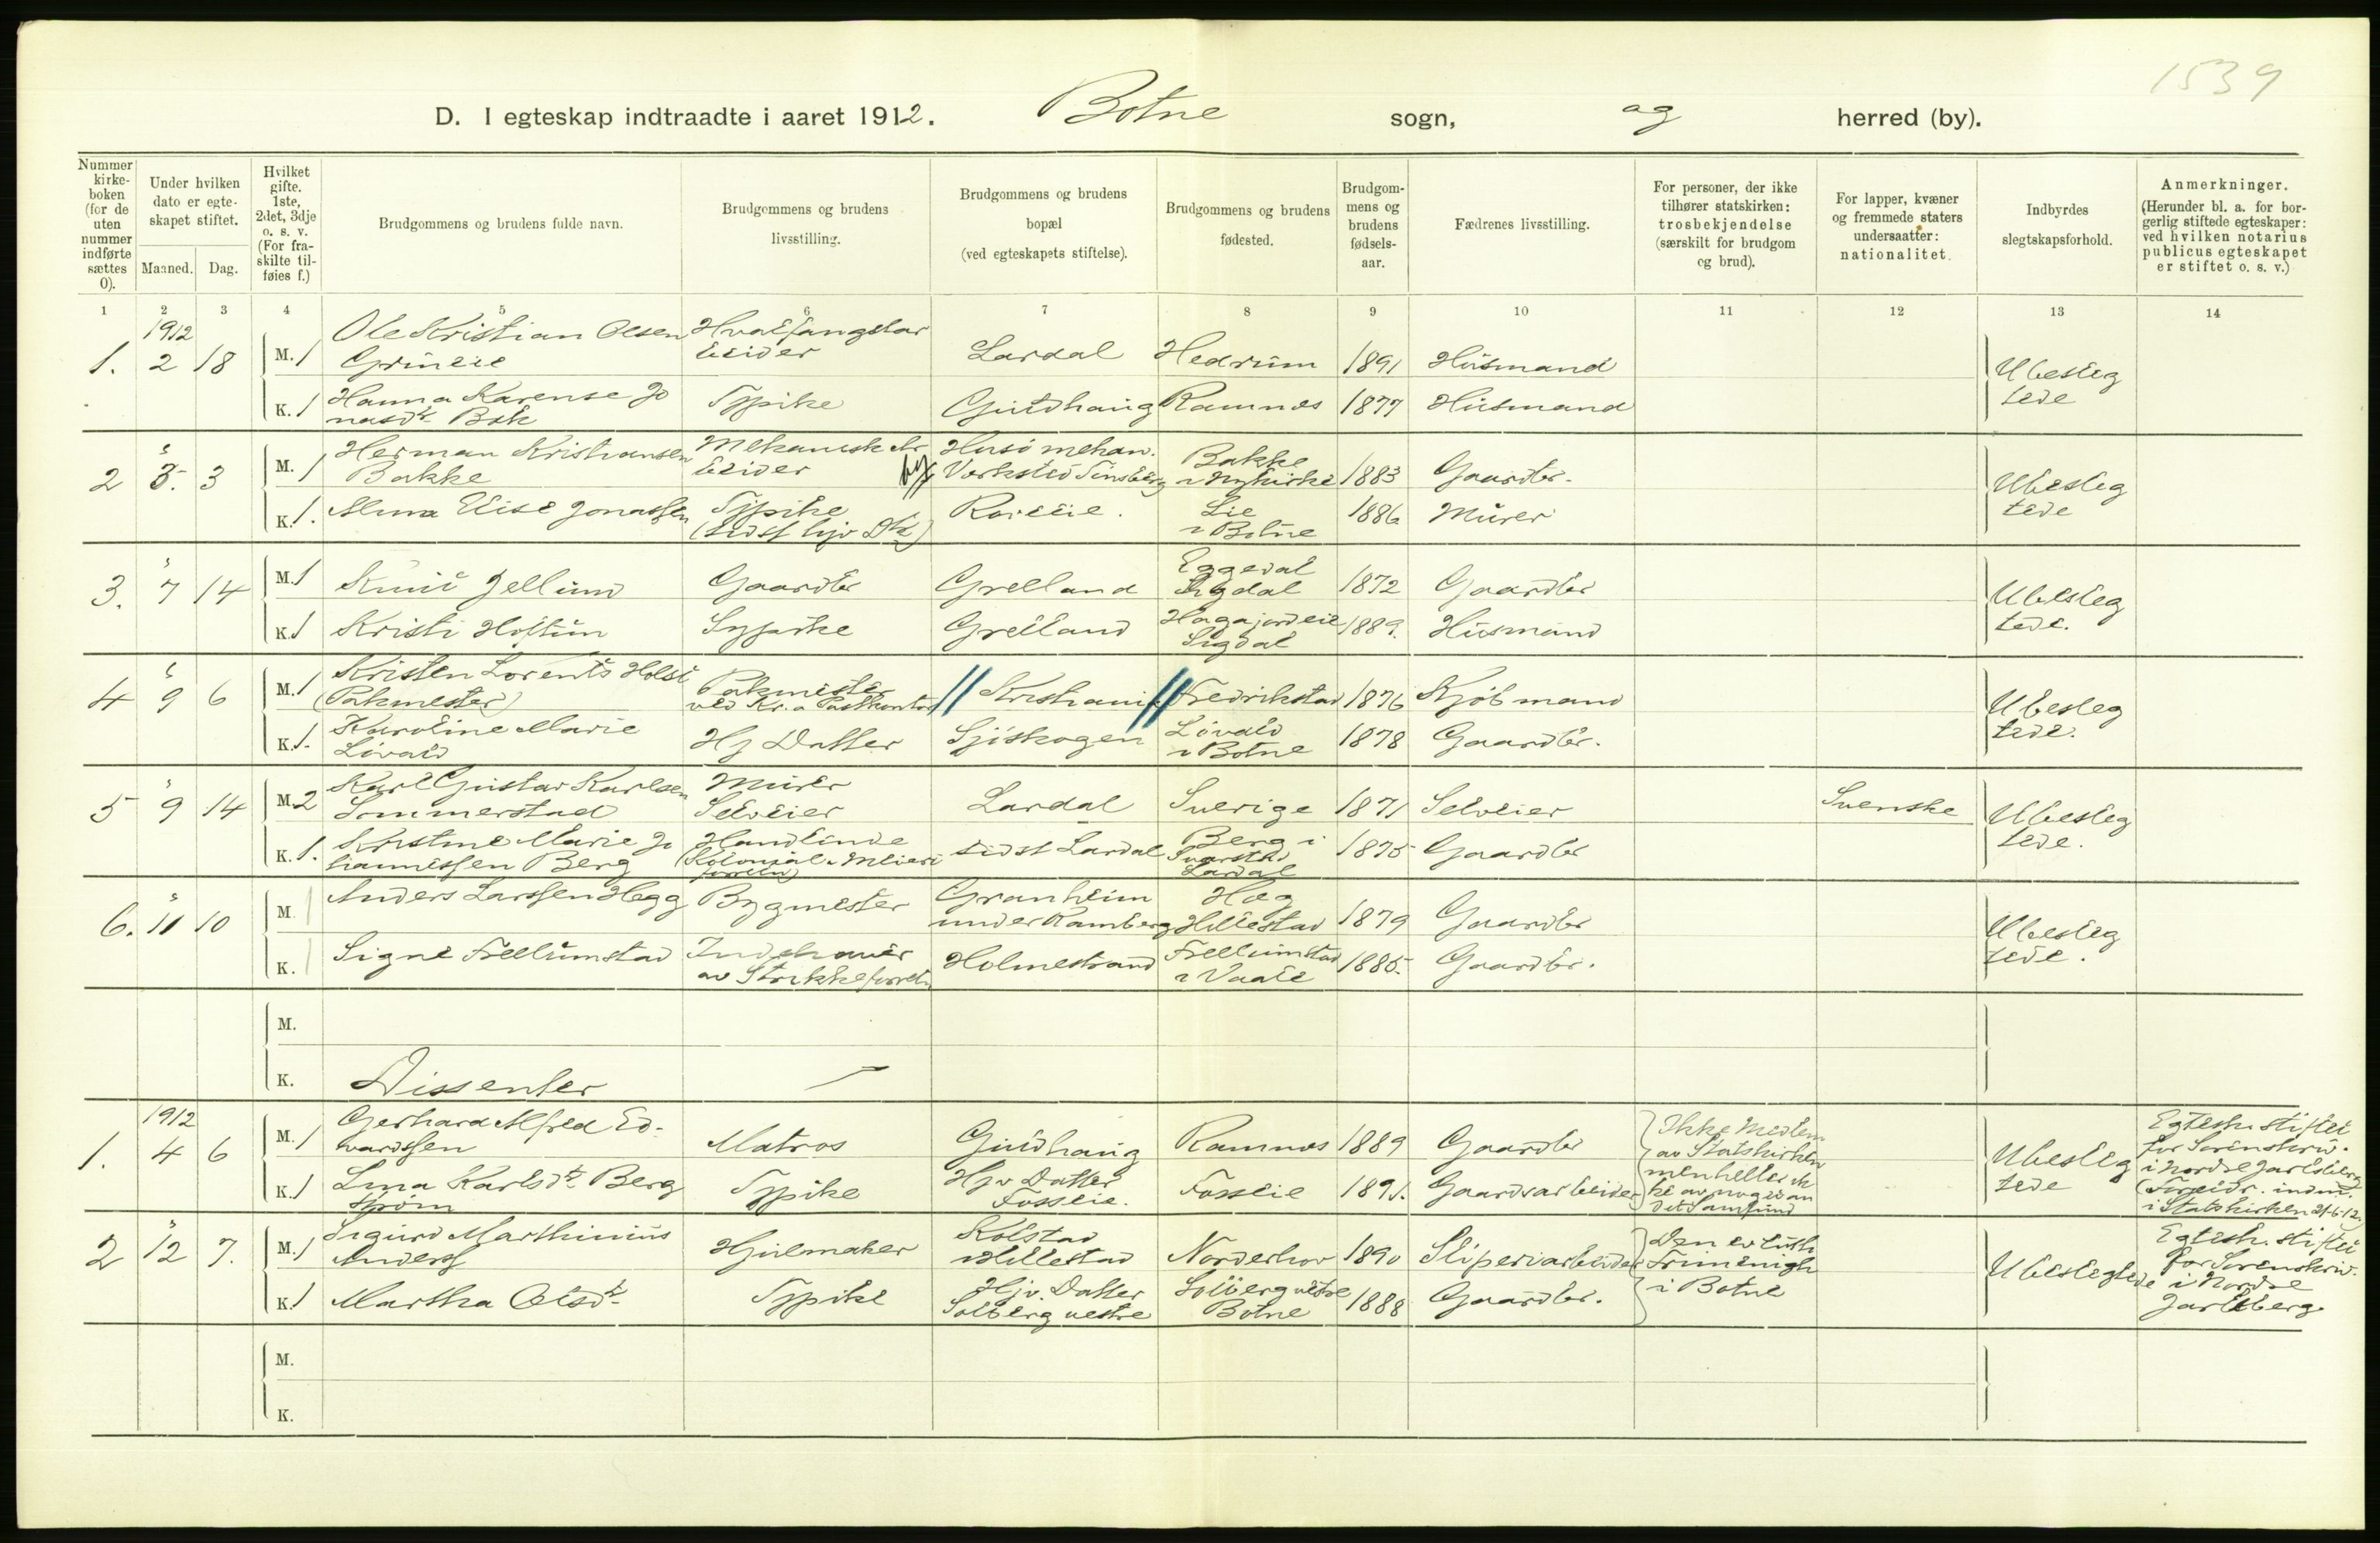 1539
D. I egteskap indtraadte i aaret 1912. Botne sogn, og herred (by).
Nummer kirke- boken (for de uten nummer indførte sættes 0).
Under hvilken dato er egte- skapet stiftet.
Maaned. Dag.
Hvilket gifte. 1ste, 2det, 3dje o. s. v. (For fra- skilte til- føies f.)
Brudgommens og brudens fulde navn.
Brudgommens og brudens livsstilling.
Brudgommens og brudens bopæl (ved egteskapets stiftelse).
Brudgommens og brudens fødested.
Brudgom- mens og brudens fødsels- aar.
Fædrenes livsstilling.
For personer, der ikke tilhører statskirken: trosbekjendelse (særskilt for brudgom og brud).
For lapper, kvæner og fremmede staters undersaatter: nationalitet.
Indbyrdes slegtskapsforhold.
Anmerkninger. (Herunder bl. a. for bor- gerlig stiftede egteskaper: ved hvilken notarius publicus egteskapet er stiftet o. s. v.)
1 2 3 4 5 6 7 8 9 10 11 12 13 14
1912
1. 2 18 M. 1 Ole Kristian Olsen Grüneie Hvalfangstar beider Lardal Hedrum 1891 Husmand Ubesleg tede
K. 1 Hanna Karense Jo nasdtr Bøk Tjpike Guldhaug Ramnes 1877 Husmand
2 " 3. 3 M. 1 Herman Kristiansen Bakke Mekanisk Ar beider Husø mehan. Verksted Tønsberg Bakke i Nykirke 1883 Gaardbr. Ubesleg tede
K. 1. Alma Elise Jonassen Tjpike (sidst hjv Dtr) Roveie. Lie i Botne 1886 Murer
3. " 7 14 M. 1 Knut Jellum Gaardbr Grelland Eggedal Sigdal 1872 Gaardbr Ubesleg tede.
K. 1 Kristi Hoftun Sypike Grelland Hagajordeie Sigdal 1889. Husmand
4 " 9 6 M. 1 Kristen Lorents Holst (Pakmester) Pakmester ved Kr.a Postkontor // Kristiania // Fredrikstad 1876 Kjøbmand Ubesleg tede.
K. 1. Karoline Marie Løvald Hj Datter Sjøskogen Løvald i Botne 1878 Gaardbr.
5 " 9 14 M. 2 Karl Gustav Karlsen Sommerstad Murer Selveier Lardal Sverige 1871 Selveier Svenske Ubesleg tede.
K. 1. Kristine Marie Jo hannessen Berg Handlende (Kolonial & Meieri forretn) sidst Lardal Berg i Svarstad Lardal 1875 Gaardbr
6. " 11 10 M. 1 Anders Larssen Hegg Bygmester Granheim under Ramberg Heg Hillestad 1879 Gaardbr Ubesleg tede.
K. 1 Signe Frellumstad Indehaver av Strikkeforretn Holmestrand Frellumstad i Vaale 1885. Gaardbr.
M.
K. Dissenter
1912
1. 4 6 M. 1 Gerhard Alfred Ed- vardssen Matros Guldhaug Ramnes 1889 Gaardbr Ikke Medlem av Statskirken men heller ik ke av noget an det Samfund Ubesleg tede Egtesk. stiftet for Sorenskriv. i Nordre Jarlsberg (Foreldr. indm. i Statskirken 21-6-12)
K. 1 Lina Karlsdtr Berg strøm Tjpike Hjv Datter Fosseie. Fosseie 1891. Gaardsarbeider
2 " 12 7. M. 1 Sigurd Marthinius Anderss Hjulmaker Kolstad Hillestad Norderhov 1890 Sliperiarbeider Den ev luth Frimenigh i Botne Ubeslegtede Egtesk. stiftet for Sorenskriv. i Nordre Jarlsberg.
K. 1 Martha Olsdtr Tjpike Hjv. Datter Solberg vestre Solberg vestre Botne 1888 Gaardbr.
M.
K.